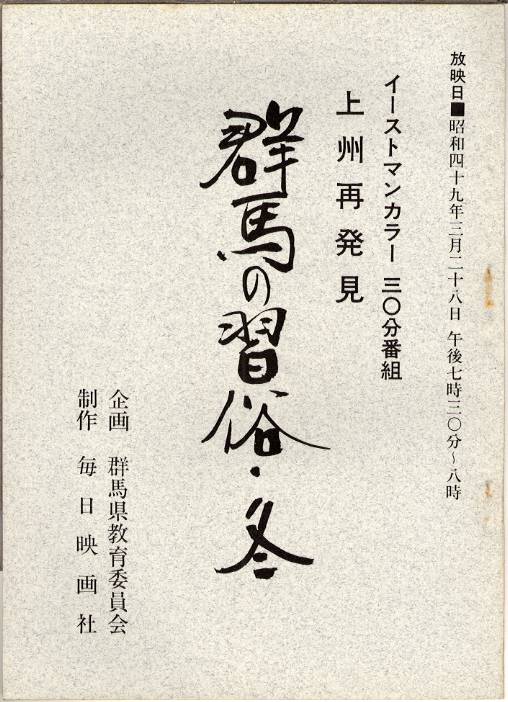 放映日■昭和四十九年三月二十八日 午後七時三〇分～八時
イーストマンカラー 三〇分番組
上州再発見
群馬の習俗・冬
企画 群馬県教育委員会
制作 毎日映画社